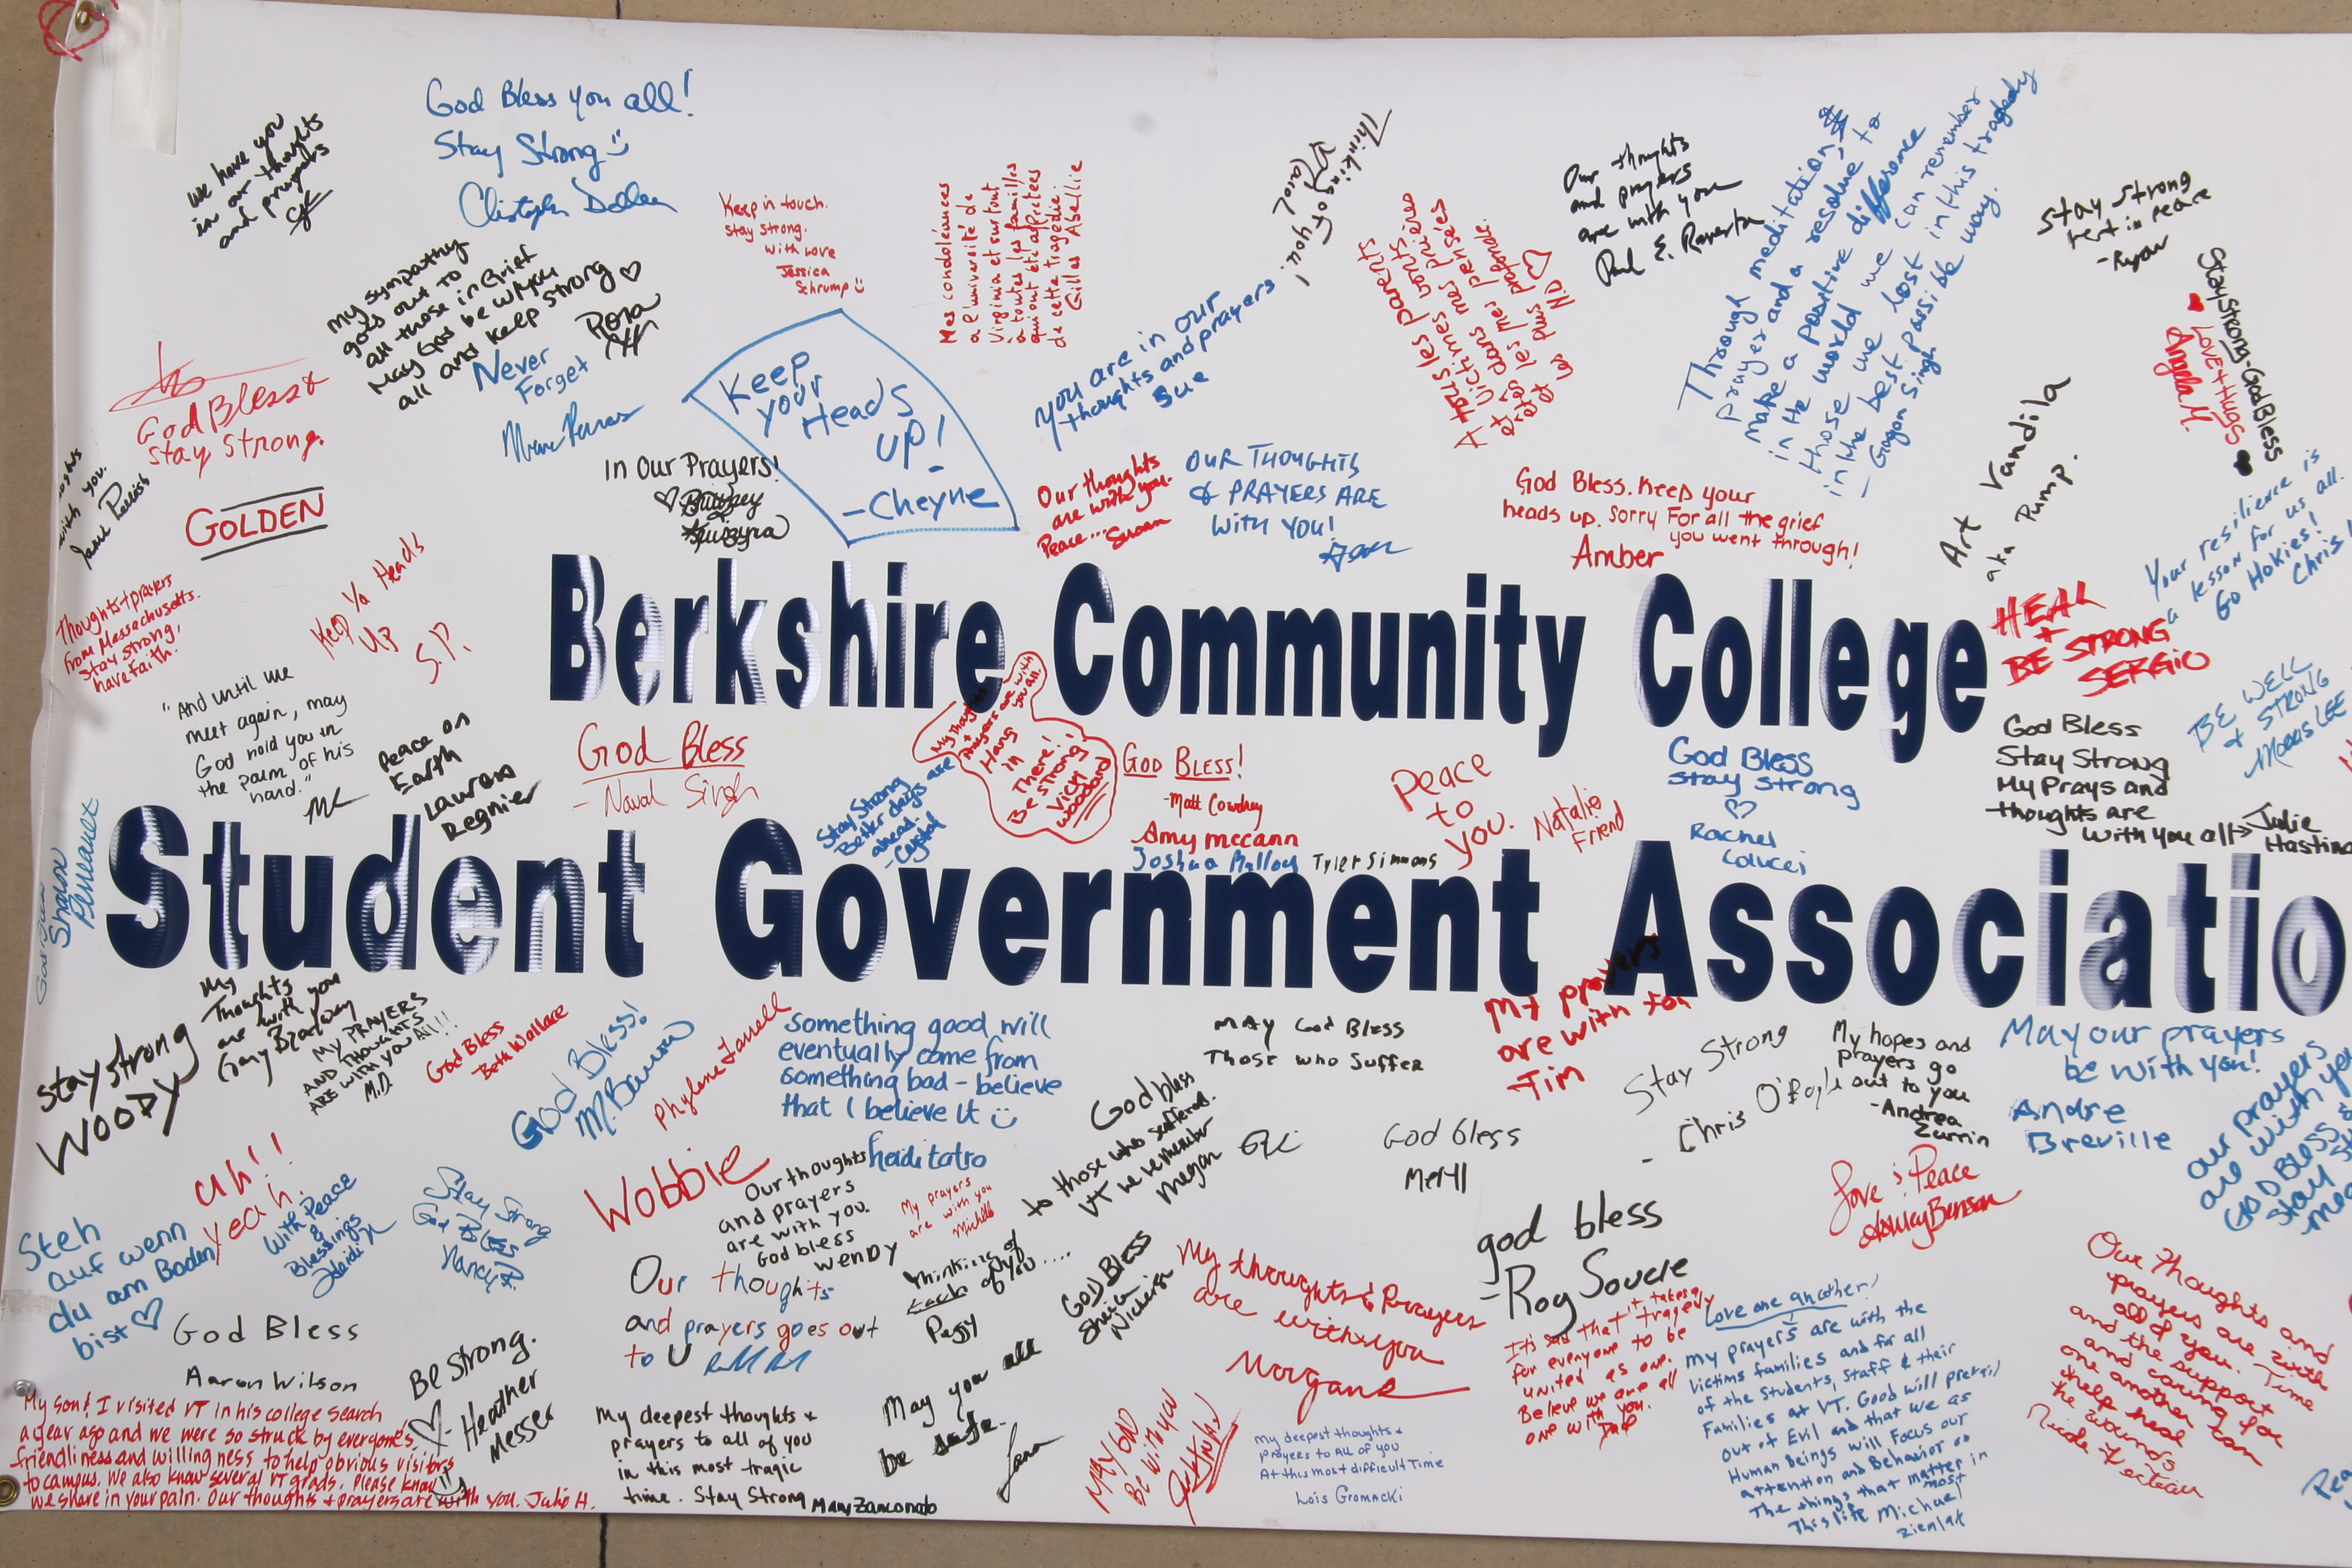 we have you
in our thoughts
and prayers
God Bless you all!
Stay Strong
my sympathy
goes out to
all those in Grief
May God be w/ you
all and keep strong
Rosa
Never
Forget
Keep in touch.
Stay strong.
With Love
Jessica
Schrump
Mes condoléances
a l'université de
Virginia et surtout
a toutes les familles
qui ont été affectées
de cette tragédie.
Gilles Abellie
Thinking of you!
you are in our
thoughts and prayers
Sue
A tous les parents
et victimes vont
mes prières
et les plus profonde.
N.D
Our thoughts
and prayers
are with you
Paul E. Raverta
Through meditation,
prayer and a resolve to
make a positive difference
in the world we can remember
those we lost in this tragedy
in the best possible way.
- Gagan Singh
Stay Strong
rest in peace
-Ryan
Stay Strong-God Bless
LOVE + HUGS
Angela M.
God Bless &
Stay Strong.
GOLDEN
with you.
In Our Prayers!
Keep
your
Heads
up!
-Cheyne
Our thoughts
are with you.
Peace... Susan
OUR THOUGHTS
& PRAYERS ARE
WITH YOU!
God Bless. Keep your
heads up. Sorry For all the grief
you went through!
Amber
Art Vandila
aka Pump.
Your resilience is
a lesson for us all.
Go Hokies!
Chris
HEAL
+
BE STRONG
SERGIO
Thoughts + prayers
from Massachusetts.
Stay strong,
have faith.
Keep Ya Heads
Up
S.P.
Berkshire Community College
"And until we
meet again, may
God hold you in
the palm of his
hand."
Peace on
Earth
Lauren
Regnier
God Bless
- Naval Singh
My thoughts
+
Prayers are with
you all.
Hang
in
There!
Be strong!
Vicki
Woodard
Stay Strong
Better days are
ahead.
-Crystal
GOD BLESS!
-Matt Cowdrey
Amy mccann
Joshua Malloy
Tyler Simmons
Peace
to
you.
Natalie
Friend
God Bless
Stay strong
Rachel
Colucci
God Bless
Stay Strong
My Prays and
thoughts are
with you all
Julie
BE WELL
+ STRONG
Sharon
Student Government Associatio
Stay strong
WOODY
My
Thoughts
are with you
Gary Broadway
MY PRAYERS
AND THOUGHTS
ARE WITH YOU ALL!!
M.D.
God Bless
Beth Wallace
God Bless!
Phylene Farrell
Something good will
eventually come from
something bad - believe
that I believe it
heidi tatro
MAY God Bless
Those who Suffer
God bless
to those who suffered.
VT we remember
Megan
My prayers
are with you
-Tim
Stay Strong
- Chris O'Boyle
My hopes and
prayers go
out to you
-Andrea
Zurrin
May our prayers
be with you!
Andre
Breville
our prayers
are with you
GOD BLESS
Stay
uh!!
yeah.
With Peace
&
Blessings
Heidi
Stay Strong
God Bless
Nancy
Wobbie
Our thoughts
and prayers
are with you.
God bless
WENDY
My prayers
are with you
Michelle
God bless
Merll
god bless
-Rog Soucie
Love & Peace
Ashley Benson
Steh
auf wenn
du am Boden
bist
God Bless
Aaron Wilson
Our thoughts
and prayers goes out
to U
Thinking of
Each of you....
Peggy
GOD BLESS
Sheila
Nickerson
My thoughts & Prayers
are with you
Morgane
It's sad that it takes a
tragedy
for everyone to be
united as one.
Believe we are all
one with you.
Love one another!
My prayers are with the
victims families and for all
of the Students, Staff & their
Families at VT. Good will prevail
out of Evil and that we as
Human Beings will Focus our
attention and Behavior on
The things that matter most in
This life Michael
Our thoughts and
prayers are with
all of you. Time
and the support
and caring for
one another can
help heal
the wounds
Nicole Fecteau
My son & I visited VT in his college search
a year ago and we were so struck by everyone's
friendliness and willingness to help obvious visitors
to campus. We also know several VT grads. Please know
we share in your pain. Our thoughts + prayers are with you. Julie H.
Be Strong.
- Heather
Messer
My deepest thoughts +
prayers to all of you
in this most tragic
time. Stay Strong
Mary Zanconato
May you all
be safe.
May God
Be with you
My deepest thoughts +
Prayers to All of you
At this most difficult Time
Lois Gromacki